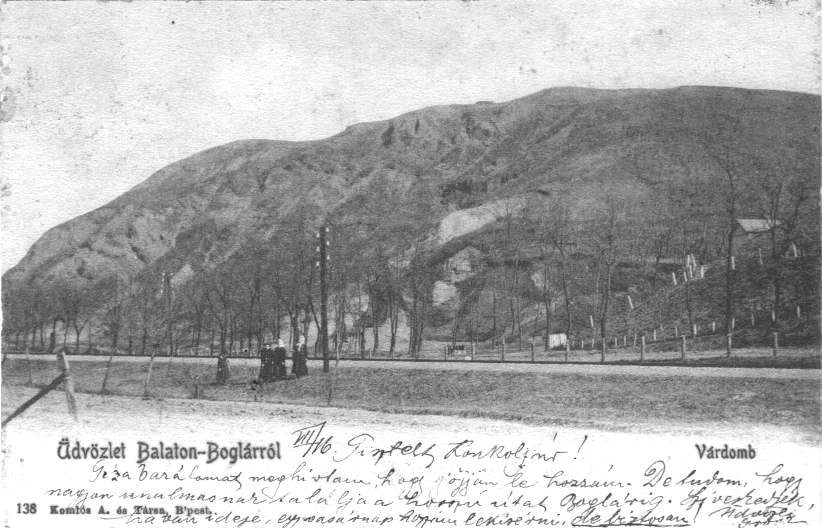 Üdvözlet Balaton-Boglárról
VII/16 Tisztelt Konkoly úr!
Várdomb
Géza barátomat meghívtam, hogy jöjjön le hozzám. De tudom, hogy
nagyon unalmasnak találja a hosszú utat Boglárig. Szíveskedjék,
138 Komtós A. és Társa, B'pest.
ha van ideje, egy vasárnap lekísérni, de biztosan